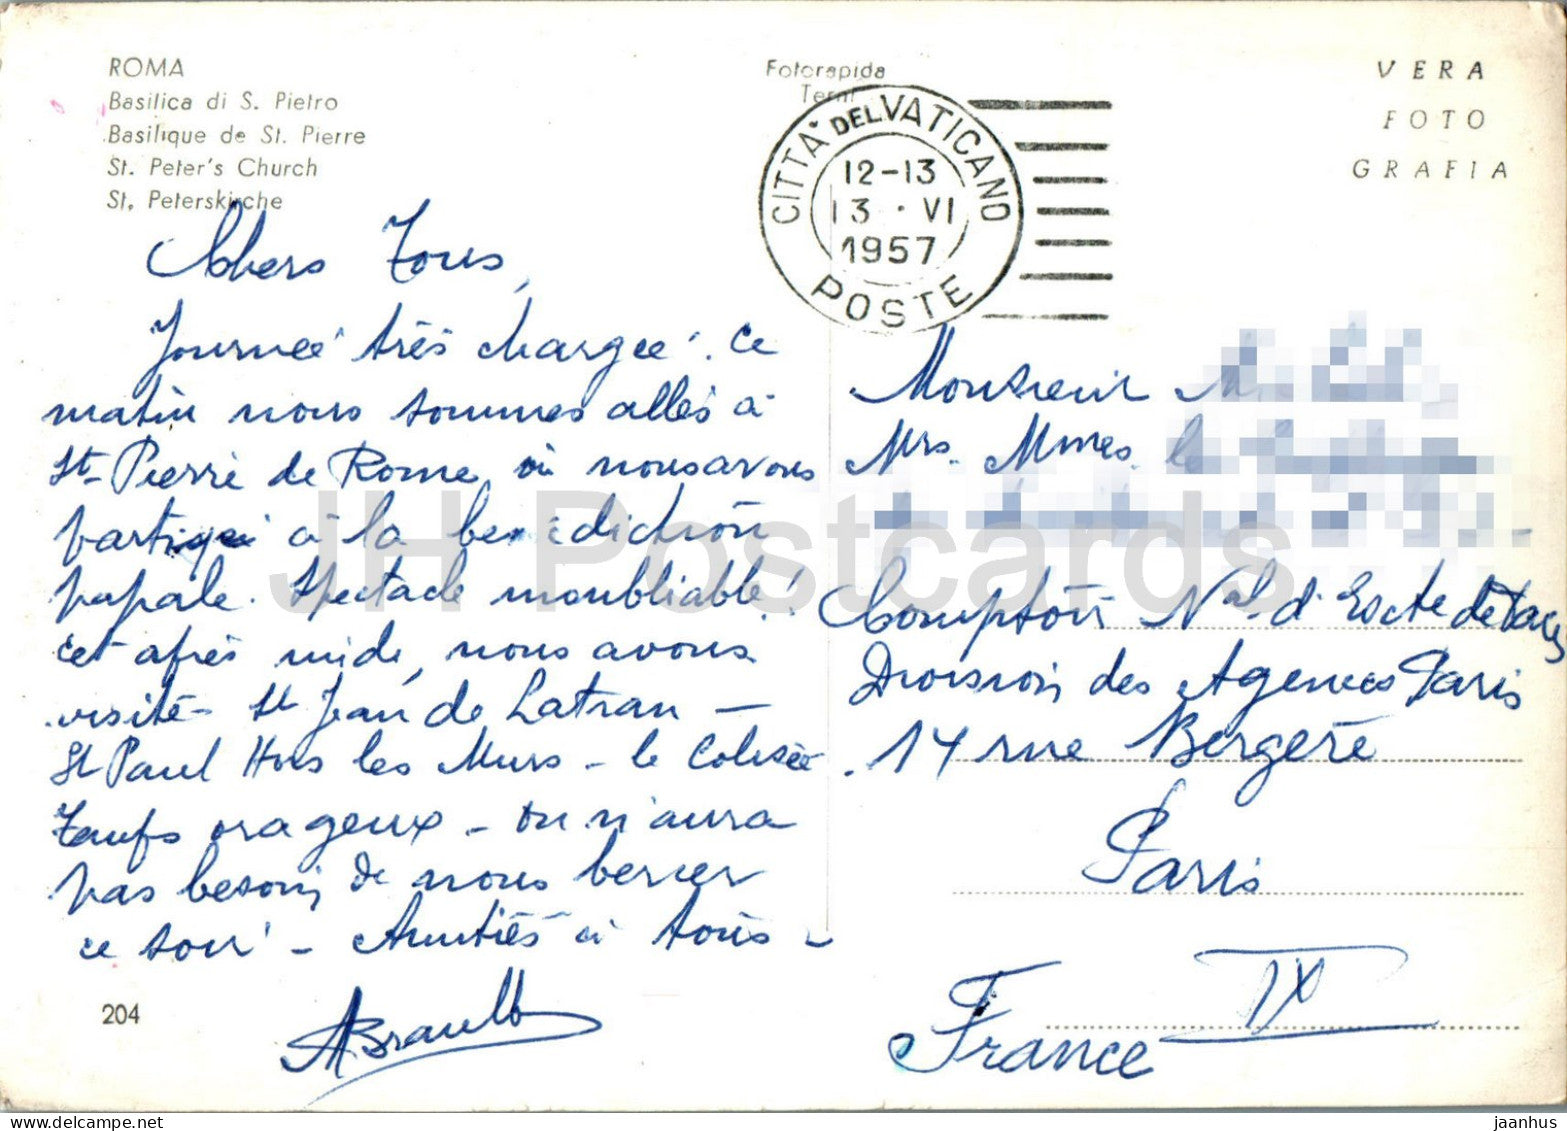 ROMA
Basilica di S. Pietro
Basilique de St. Pierre
St. Peter's Church
St. Peterskirche
Fotorapida
Terni
CITTA' DEL VATICANO
12-13
13 · VI
1957
POSTE
VERA
FOTO
GRAFIA
Chers Tous,
Journée très chargée. Ce
matin nous sommes allés à
St Pierre de Rome où nous avons
participé à la bénédiction
papale. Spectacle inoubliable!
cet après midi, nous avons
visité - St Jean de Latran -
St Paul Hors les Murs - le Colisée
Temps orageux - on n'aura
pas besoin de nous bercer
ce soir! - Amitiés à tous -
ABrault
204
Monsieur
Mrs. Mmes. les
Comptoir Nal d'Escte de Paris
Division des Agences Paris
14 rue Bergère
Paris
IX
France
JH Postcards
www.delcampe.net
jaanhus